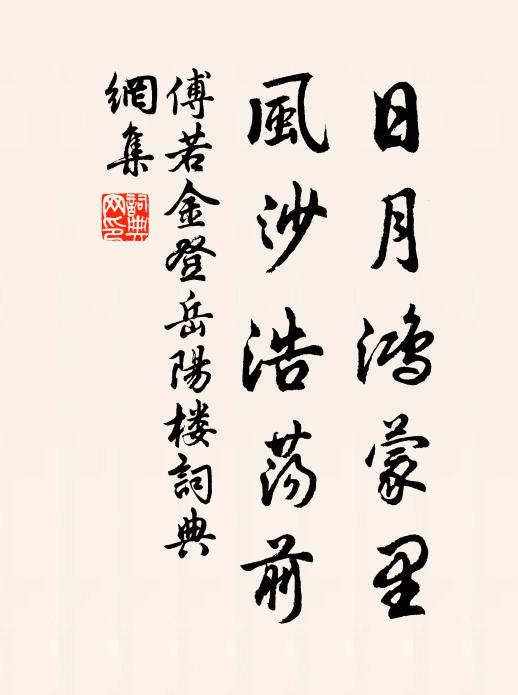 日月鸿蒙里
風沙浩荡前
傅若金登岳陽楼詞典
網集
詞典
网印